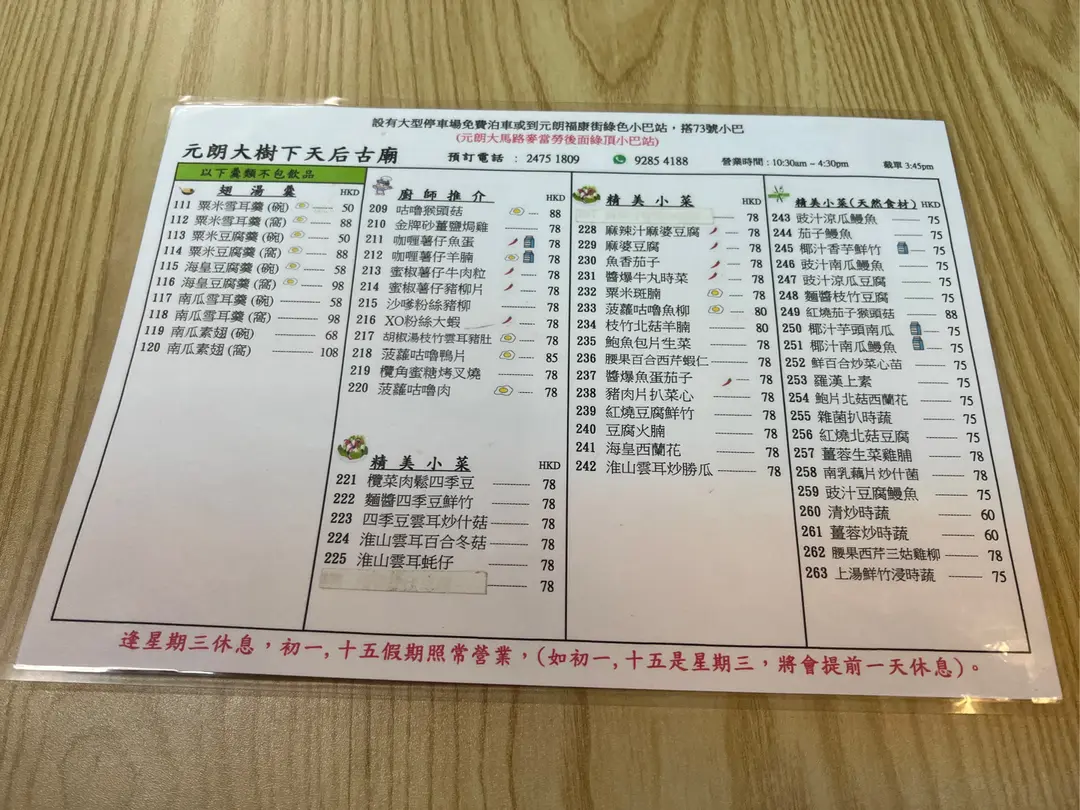 設有大型停車場免費泊車或到元朗福康街綠色小巴站，搭73號小巴
(元朗大馬路麥當勞後面綠頂小巴站)
元朗大樹下天后古廟 預訂電話 : 2475 1809 9285 4188 營業時間 : 10:30am ~ 4:30pm 截單 3:45pm
以下羹類不包飲品
翅湯羹 HKD
111 粟米雪耳羹 (碗) 50
112 粟米雪耳羹 (窩) 88
113 粟米豆腐羹 (碗) 50
114 粟米豆腐羹 (窩) 88
115 海皇豆腐羹 (碗) 58
116 海皇豆腐羹 (窩) 98
117 南瓜雪耳羹 (碗) 58
118 南瓜雪耳羹 (窩) 98
119 南瓜素翅 (碗) 68
120 南瓜素翅 (窩) 108
廚師推介 HKD
209 咕嚕猴頭菇 88
210 金牌砂薑鹽焗雞 78
211 咖喱薯仔魚蛋 78
212 咖喱薯仔羊腩 78
213 蜜椒薯仔牛肉粒 78
214 蜜椒薯仔豬柳片 78
215 沙嗲粉絲豬柳 78
216 XO粉絲大蝦 78
217 胡椒湯枝竹雲耳豬肚 78
218 菠蘿咕嚕鴨片 85
219 欖角蜜糖烤叉燒 78
220 菠蘿咕嚕肉 78
精美小菜 HKD
221 欖菜肉鬆四季豆 78
222 麵醬四季豆鮮竹 78
223 四季豆雲耳炒什菇 78
224 淮山雲耳百合冬菇 78
225 淮山雲耳蚝仔 78
78
精美小菜 HKD
78
228 麻辣汁麻婆豆腐 78
229 麻婆豆腐 78
230 魚香茄子 78
231 醬爆牛丸時菜 78
232 粟米斑腩 78
233 菠蘿咕嚕魚柳 80
234 枝竹北菇羊腩 80
235 鮑魚包片生菜 78
236 腰果百合西芹蝦仁 78
237 醬爆魚蛋茄子 78
238 豬肉片扒菜心 78
239 紅燒豆腐鮮竹 78
240 豆腐火腩 78
241 海皇西蘭花 78
242 淮山雲耳炒勝瓜 78
精美小菜(天然食材) HKD
243 豉汁涼瓜鰻魚 75
244 茄子鰻魚 75
245 椰汁香芋鮮竹 75
246 豉汁南瓜鰻魚 75
247 豉汁涼瓜豆腐 75
248 麵醬枝竹豆腐 75
249 紅燒茄子猴頭菇 88
250 椰汁芋頭南瓜 75
251 椰汁南瓜鰻魚 75
252 鮮百合炒菜心苗 75
253 羅漢上素 75
254 鮑片北菇西蘭花 75
255 雜菌扒時蔬 75
256 紅燒北菇豆腐 75
257 薑蓉生菜雞腩 78
258 南乳藕片炒什菌 78
259 豉汁豆腐鰻魚 75
260 清炒時蔬 60
261 薑蓉炒時蔬 60
262 腰果西芹三姑雞柳 78
263 上湯鮮竹浸時蔬 75
逢星期三休息，初一, 十五假期照常營業，(如初一, 十五是星期三，將會提前一天休息)。